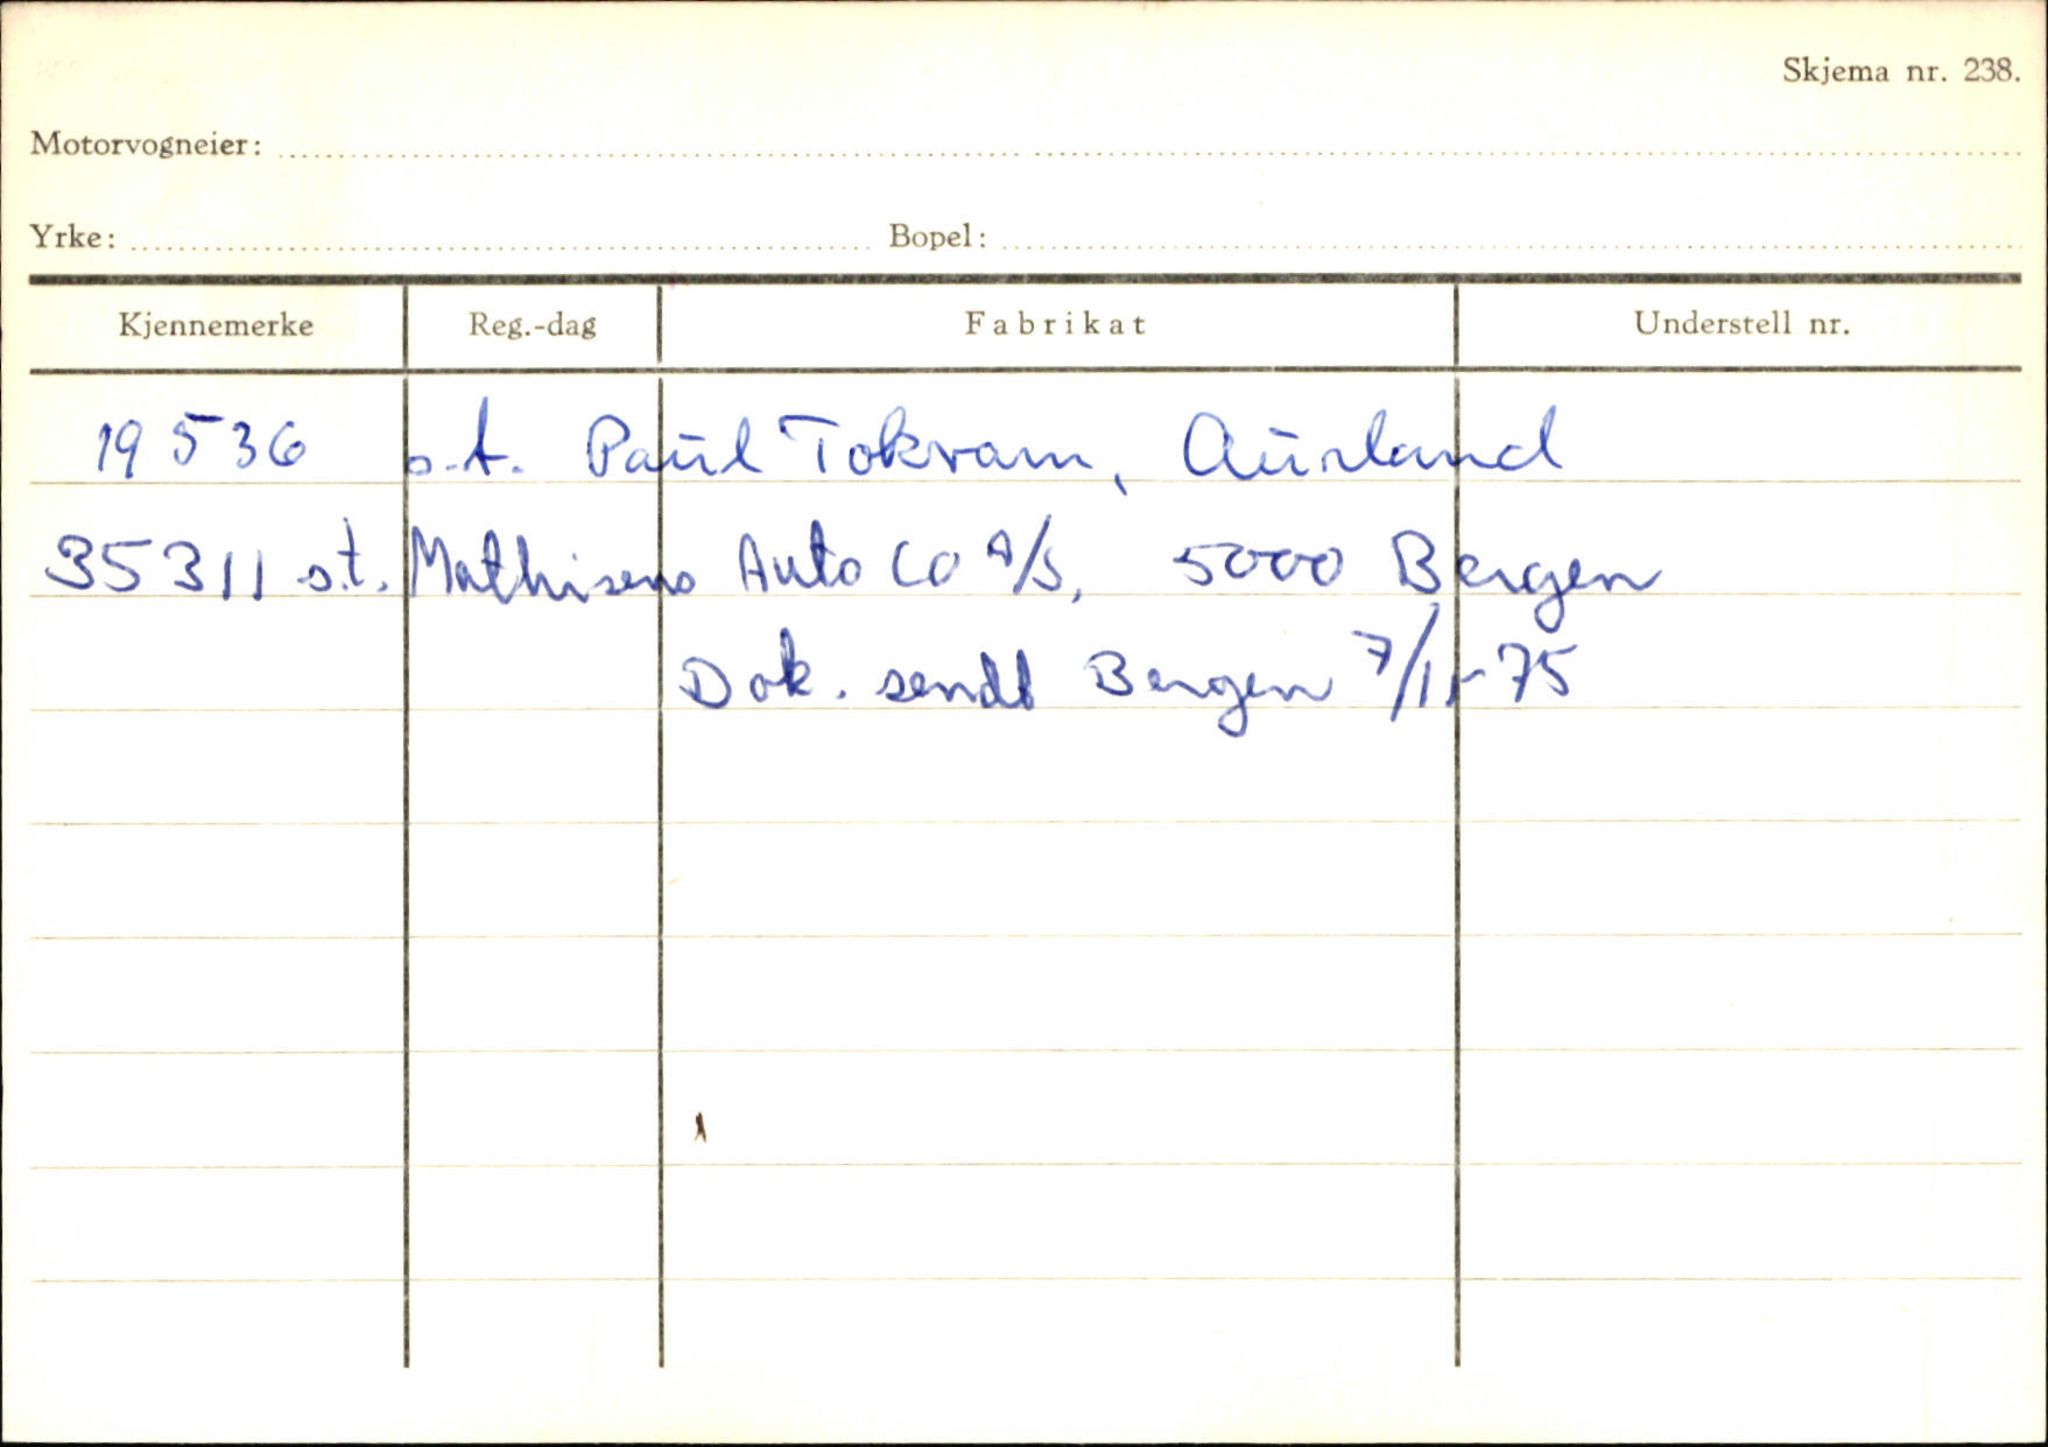 Skjema nr. 238.
Motorvogneier:
Yrke: Bopel:
Kjennemerke Reg.-dag Fabrikat Understell nr.
19536 s.t. Paul Tokvam, Aurland
35311 s.t. Mathisens Auto Co A/S, 5000 Bergen
Dok. sendt Bergen 7/11-75